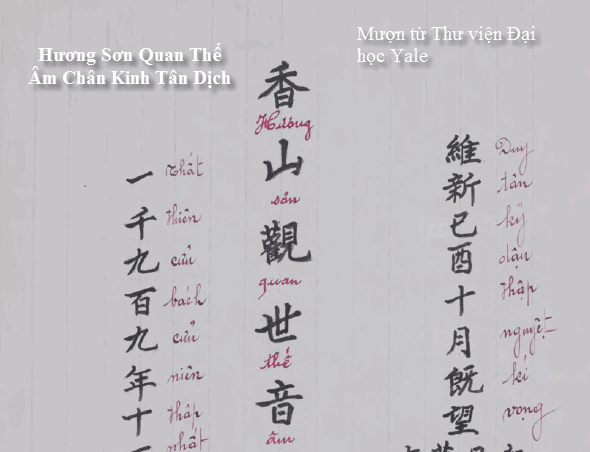 Hương Sơn Quan Thế
Âm Chân Kinh Tân Dịch
Mượn từ Thư viện Đại
học Yale
維新己酉十月既望
Duy tân kỷ dậu thập nguyệt kí vọng
香山觀世音
Hương sơn quan thế âm
一千九百九年十
Nhất thiên cửu bách cửu niên thập nhất